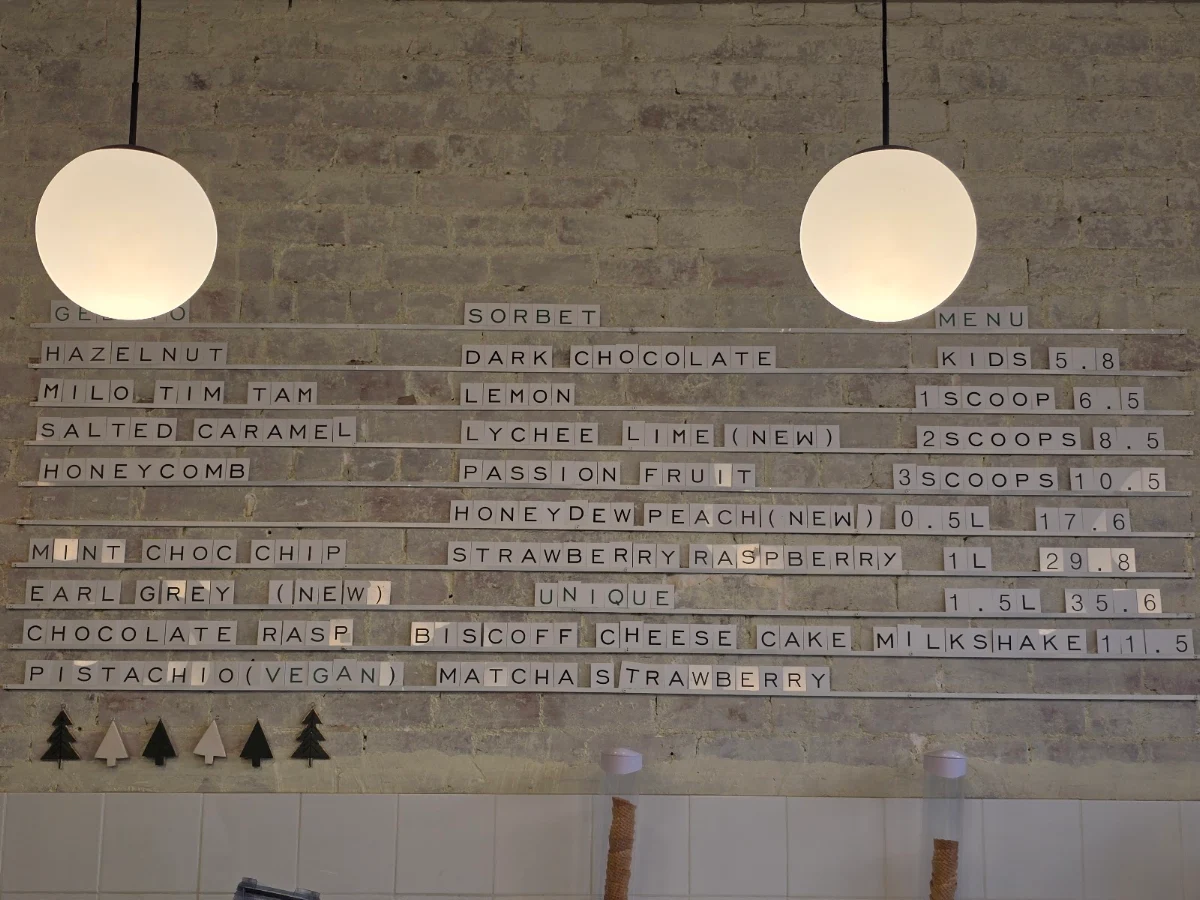 SORBET
MENU
HAZELNUT
DARK CHOCOLATE
KIDS 5.8
MILO TIM TAM
LEMON
1SCOOP 6.5
SALTED CARAMEL
LYCHEE LIME (NEW)
2SCOOPS 8.5
HONEYCOMB
PASSION FRUIT
3SCOOPS 10.5
HONEYDEW PEACH(NEW)
0.5L 17.6
MINT CHOC CHIP
STRAWBERRY RASPBERRY
1L 29.8
EARL GREY (NEW)
UNIQUE
1.5L 35.6
CHOCOLATE RASP
BISCOFF CHEESE CAKE
MILKSHAKE 11.5
PISTACHIO(VEGAN)
MATCHA STRAWBERRY